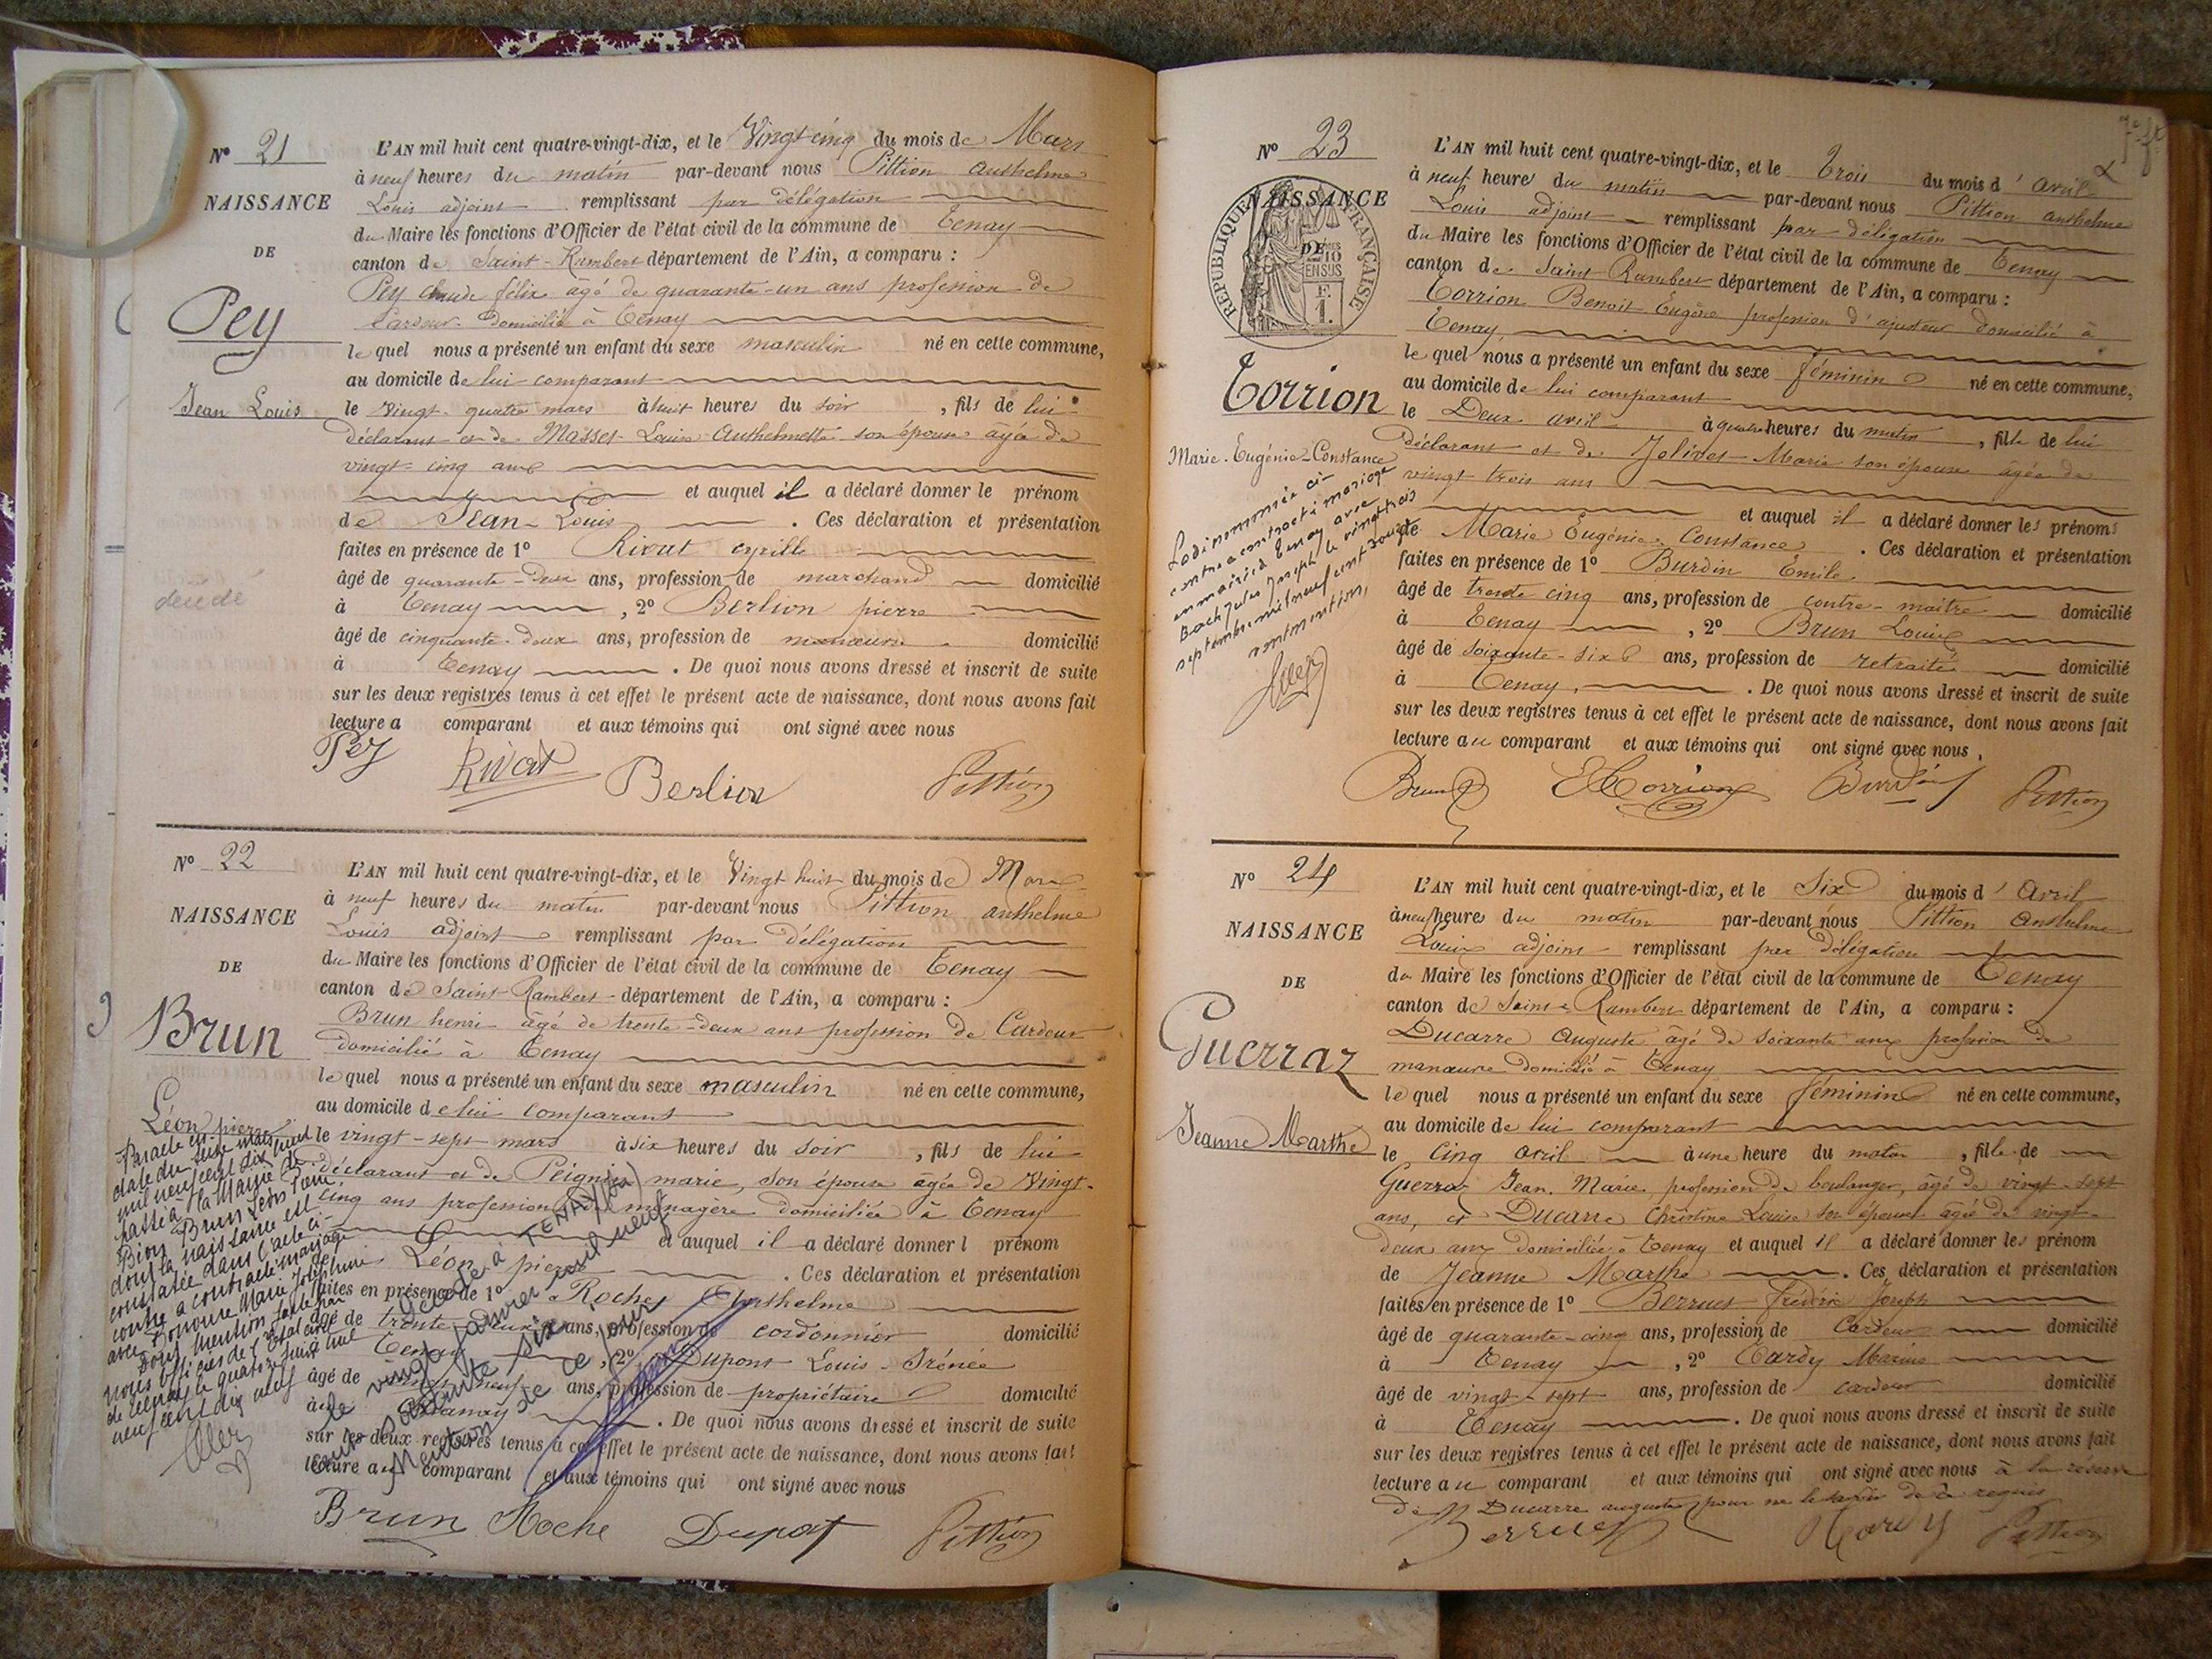 N° 21
NAISSANCE
DE
Pey
Jean Louis
L'AN mil huit cent quatre-vingt-dix, et le Vingt-cinq du mois de Mars
à neuf heures du matin par-devant nous Pittion anthelme
Louis adjoint remplissant par délégation
du Maire les fonctions d'Officier de l'état civil de la commune de Tenay
canton de Saint-Rambert département de l'Ain, a comparu :
Pey Claude félix agé de quarante-un ans profession de
Cardeur domicilié à Tenay
lequel nous a présenté un enfant du sexe masculin né en cette commune,
au domicile de lui comparant
le vingt-quatre mars à huit heures du soir , fils de lui
déclarant et de Masset Louise Anthelmette son épouse âgée de
vingt-cinq ans
et auquel il a déclaré donner le prénom
de Jean-Louis . Ces déclaration et présentation
faites en présence de 1° Rivat cyrille
âgé de quarante-deux ans, profession de marchand domicilié
à Tenay , 2° Berlion pierre
âgé de cinquante-deux ans, profession de manœuvre domicilié
à Tenay . De quoi nous avons dressé et inscrit de suite
sur les deux registres tenus à cet effet le présent acte de naissance, dont nous avons fait
lecture a comparant et aux témoins qui ont signé avec nous
Pey Rivat Berlion Pittion
N° 22
NAISSANCE
DE
Brun
Léon pierre
Par acte en
date du seize mai
mil neuf cent dix neuf
passé à la Mairie de
Dion Brun Léon Pierre
dont la naissance est
constatée dans l'acte ci-
contre a contracté mariage
avec Marie Joséphine
Dont mention faite par
nous officier de l'état civil
de Tenay le quatorze juin mil
neuf cent dix neuf
L'AN mil huit cent quatre-vingt-dix, et le Vingt huit du mois de Mars
à neuf heures du matin par-devant nous Pittion anthelme
Louis adjoint remplissant par délégation
du Maire les fonctions d'Officier de l'état civil de la commune de Tenay
canton de Saint-Rambert département de l'Ain, a comparu :
Brun henri âgé de trente-deux ans profession de Cardeur
domicilié à Tenay
lequel nous a présenté un enfant du sexe masculin né en cette commune,
au domicile de lui comparant
le vingt-sept mars à six heures du soir , fils de lui
déclarant et de Peignin marie, son épouse âgée de Vingt-
cinq ans profession de ménagère domiciliée à Tenay
et auquel il a déclaré donner l prénom
Léon pierre . Ces déclaration et présentation
faites en présence de 1° Roche Anthelme
âgé de trente-deux ans, profession de cordonnier domicilié
à Tenay , 2° Dupont Louis Irénée
âgé de vingt-neuf ans, profession de propriétaire domicilié
à . De quoi nous avons dressé et inscrit de suite
sur les deux registres tenus à cet effet le présent acte de naissance, dont nous avons fait
lecture au comparant et aux témoins qui ont signé avec nous
Décédé à TENAY (Ain)
le vingt janvier mil neuf
cent soixante six
Mention de ce jour
Brun Roche Dupont Pittion
N° 23
NAISSANCE
DE
RÉPUBLIQUE FRANÇAISE
Torrion
Marie-Eugénie-Constance
La dénommée ci-
contre a contracté mariage
en mairie de Tenay avec
Bach Jules Joseph le vingt trois
septembre mil neuf cent douze
dont mention,
L'AN mil huit cent quatre-vingt-dix, et le Trois du mois d'avril
à neuf heures du matin par-devant nous Pittion anthelme
Louis adjoint remplissant par délégation
du Maire les fonctions d'Officier de l'état civil de la commune de Tenay
canton de Saint Rambert département de l'Ain, a comparu :
Torrion Benoit Eugène profession d'ajusteur domicilié à
Tenay
lequel nous a présenté un enfant du sexe féminin né en cette commune,
au domicile de lui comparant
le Deux avril à quatre heures du matin , fille de lui
déclarant et de Jolivet Marie son épouse agée de
vingt trois ans
et auquel il a déclaré donner les prénoms
de Marie Eugénie Constance . Ces déclaration et présentation
faites en présence de 1° Burdin Emile
âgé de trente cinq ans, profession de contre-maître domicilié
à Tenay , 2° Brun Louis
âgé de soixante-six ans, profession de retraité domicilié
à Tenay . De quoi nous avons dressé et inscrit de suite
sur les deux registres tenus à cet effet le présent acte de naissance, dont nous avons fait
lecture au comparant et aux témoins qui ont signé avec nous.
Brun E Torrion Burdin Pittion
N° 24
NAISSANCE
DE
Guerraz
Jeanne Marthe
L'AN mil huit cent quatre-vingt-dix, et le Six du mois d'Avril
à neuf heures du matin par-devant nous Pittion Anthelme
Louis adjoint remplissant par délégation
du Maire les fonctions d'Officier de l'état civil de la commune de Tenay
canton de Saint-Rambert département de l'Ain, a comparu :
Ducarre Auguste âgé de soixante ans profession de
manœuvre domicilié à Tenay
lequel nous a présenté un enfant du sexe féminin né en cette commune,
au domicile de lui comparant
le Cinq avril à une heure du matin , fille de
Guerraz Jean Marie profession de boulanger, âgé de vingt-sept
ans, et Ducarre Christine Louise son épouse âgée de vingt-
deux ans domiciliée à Tenay et auquel il a déclaré donner les prénom
de Jeanne Marthe . Ces déclaration et présentation
faites en présence de 1° Berruet Frédéric Joseph
âgé de quarante-cinq ans, profession de Cardeur domicilié
à Tenay , 2° Cardy Marius
âgé de vingt-sept ans, profession de cardeur domicilié
à Tenay . De quoi nous avons dressé et inscrit de suite
sur les deux registres tenus à cet effet le présent acte de naissance, dont nous avons fait
lecture au comparant et aux témoins qui ont signé avec nous à la réserve
de Ducarre auguste pour ne le savoir de ce requis
Berruet Pittion